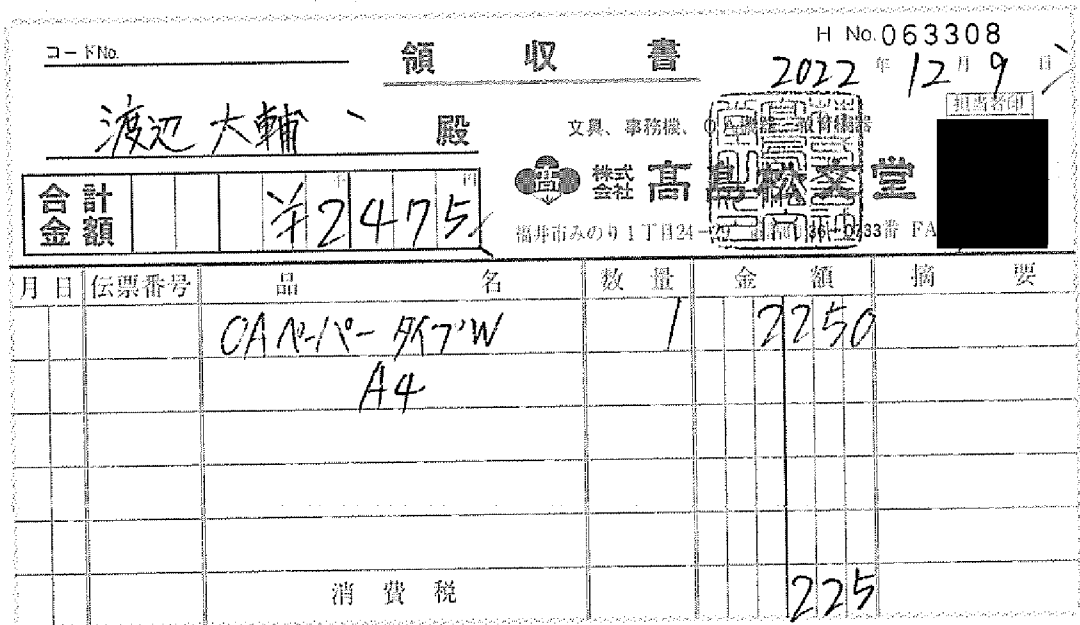 コードNo.
領収書
H No.063308
2022年12月9日
渡辺 大輔 殿
担当者印
文具、事務機、OA機器、教育機器
株式会社 髙島松茎堂
合計金額 ¥2475
福井市みのり1丁目24-
月 日 伝票番号 品名 数量 金額 摘要
OAペーパー タイプW 1 2250
A4
消費税 225